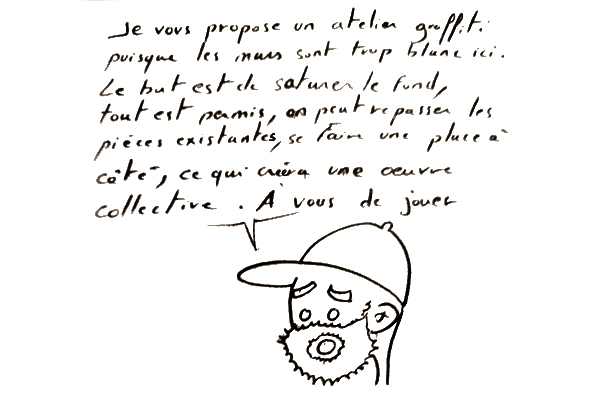 Je vous propose un atelier graffiti
puisque les murs sont trop blanc ici.
Le but est de saturer le fond,
tout est permis, on peut repasser les
pièces existantes, se faire une place à
côté, ce qui créera une oeuvre
collective. A vous de jouer